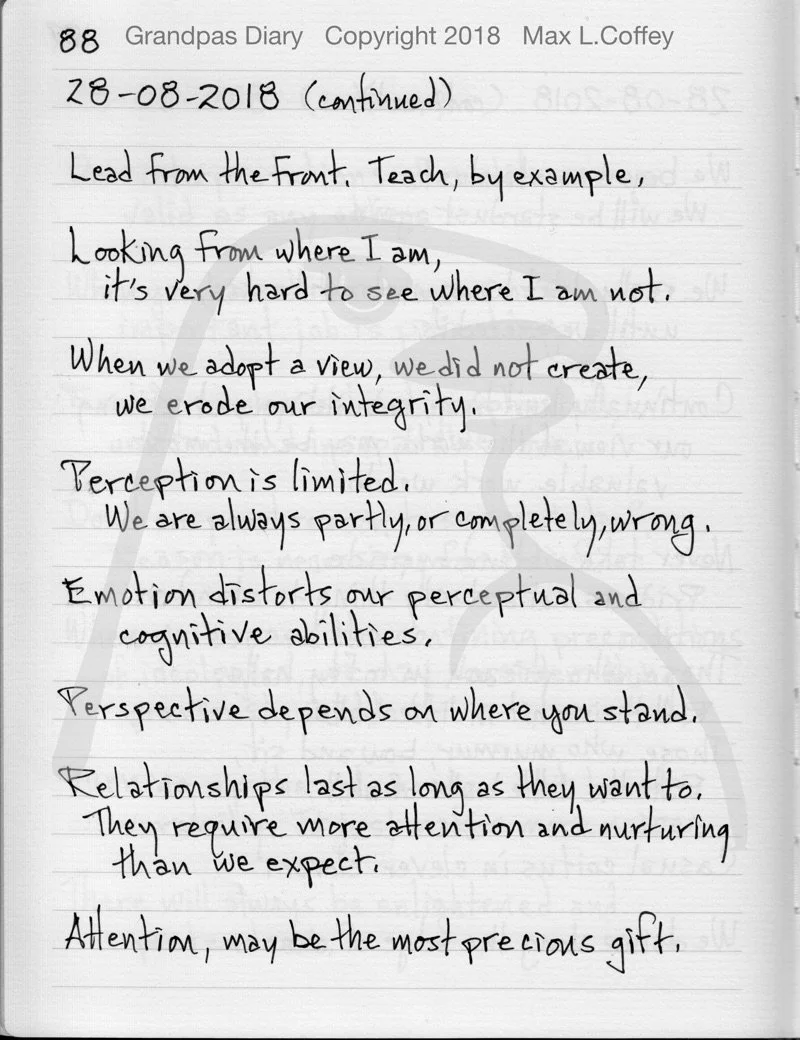 88 Grandpas Diary Copyright 2018 Max L.Coffey
28-08-2018 (continued)
Lead from the front. Teach, by example,
Looking from where I am,
it's very hard to see where I am not.
When we adopt a view, we did not create,
we erode our integrity.
Perception is limited.
We are always partly, or completely, wrong.
Emotion distorts our perceptual and
cognitive abilities.
Perspective depends on where you stand.
Relationships last as long as they want to.
They require more attention and nurturing
than we expect.
Attention, may be the most precious gift.